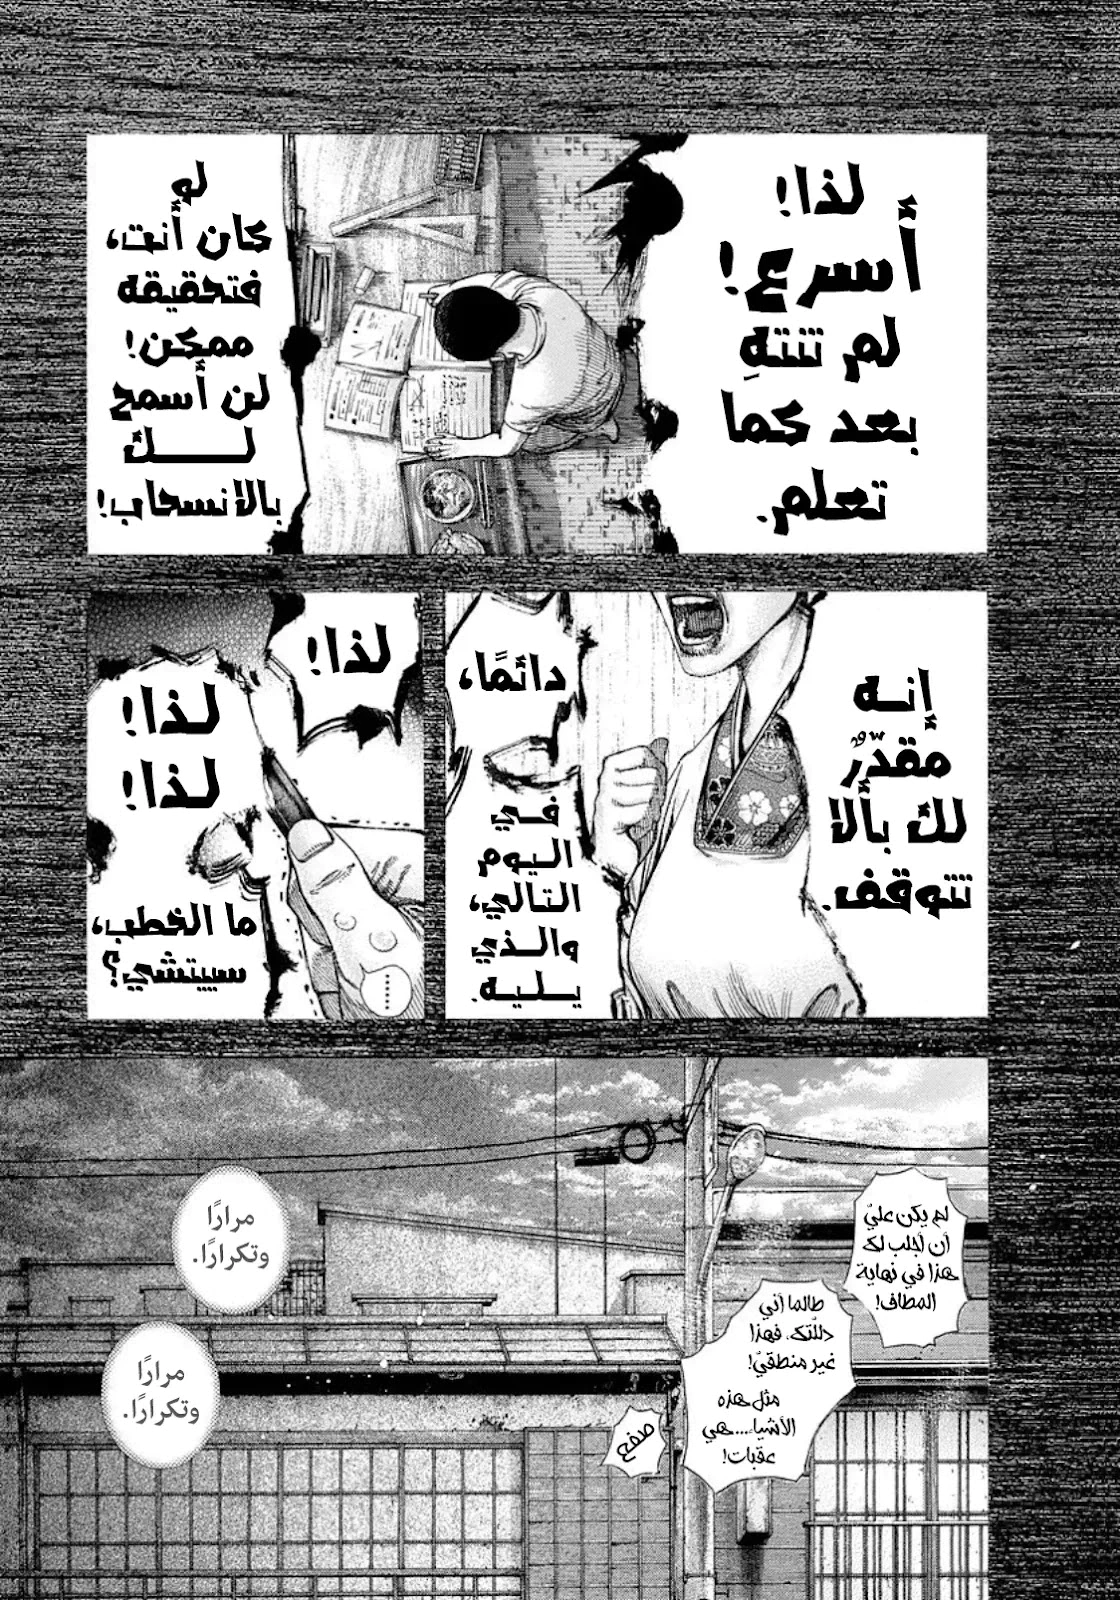 لذا!
أسرع!
لم تنتهِ
بعد كما
تعلم.
لو
كان أنت،
فتحقيقه
ممكن!
لن أسمح
لك
بالانسحاب!
إنه
مقدّرٌ
لك بألا
تتوقف.
دائمًا،
في
اليوم
التالي،
والذي
يليه.
لذا!
لذا!
لذا!
ما الخطب،
سييتشي؟
......
لم يكن عليّ
أن أجلب لك
هذا في نهاية
المطاف!
طالما أني
دللّتك، فهذا
غير منطقيّ!
مثل هذه
الأشياء....هي
عقبات!
صفع
مرارًا
وتكرارًا.
مرارًا
وتكرارًا.